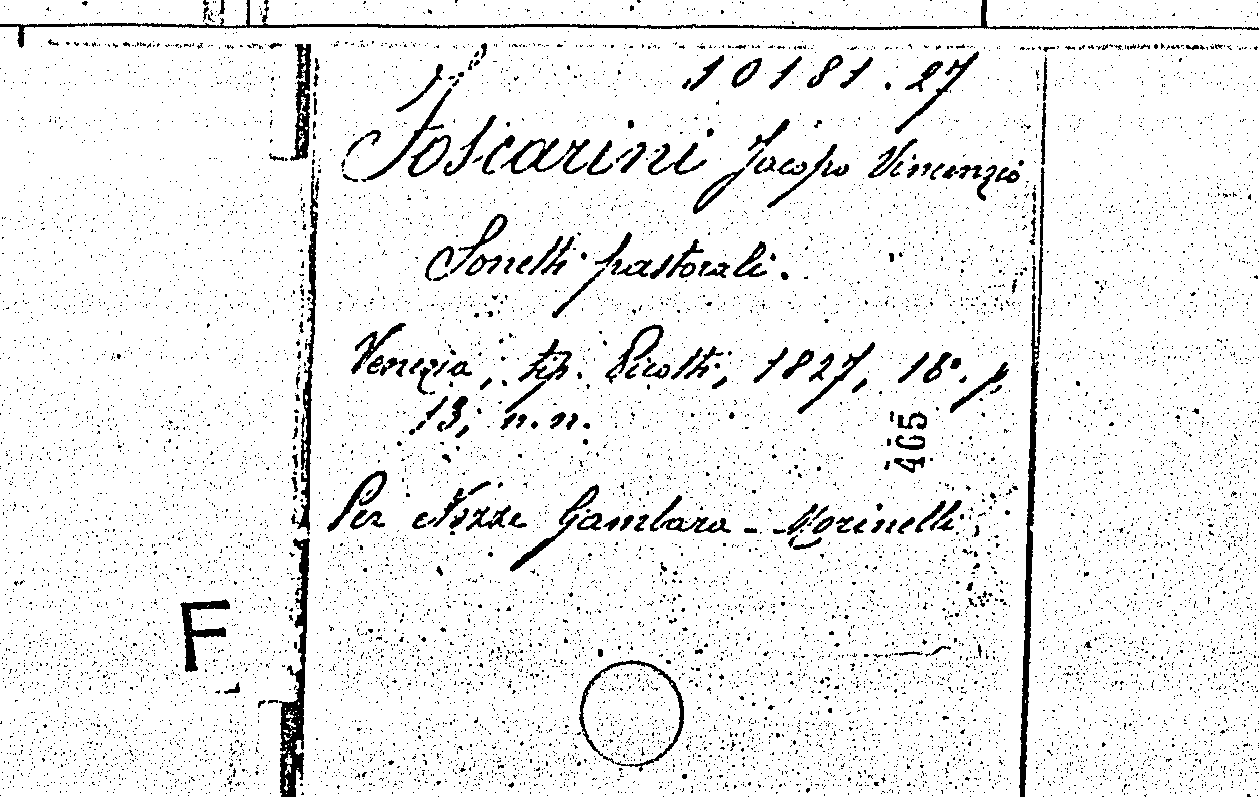 10181.27
Foscarini Jacopo Vincenzio
Sonetti pastorali.
Venezia, tip. Picotti, 1827, 16°. p.
13, n.n.
405
Per Nozze Gambara - Morinelli
F